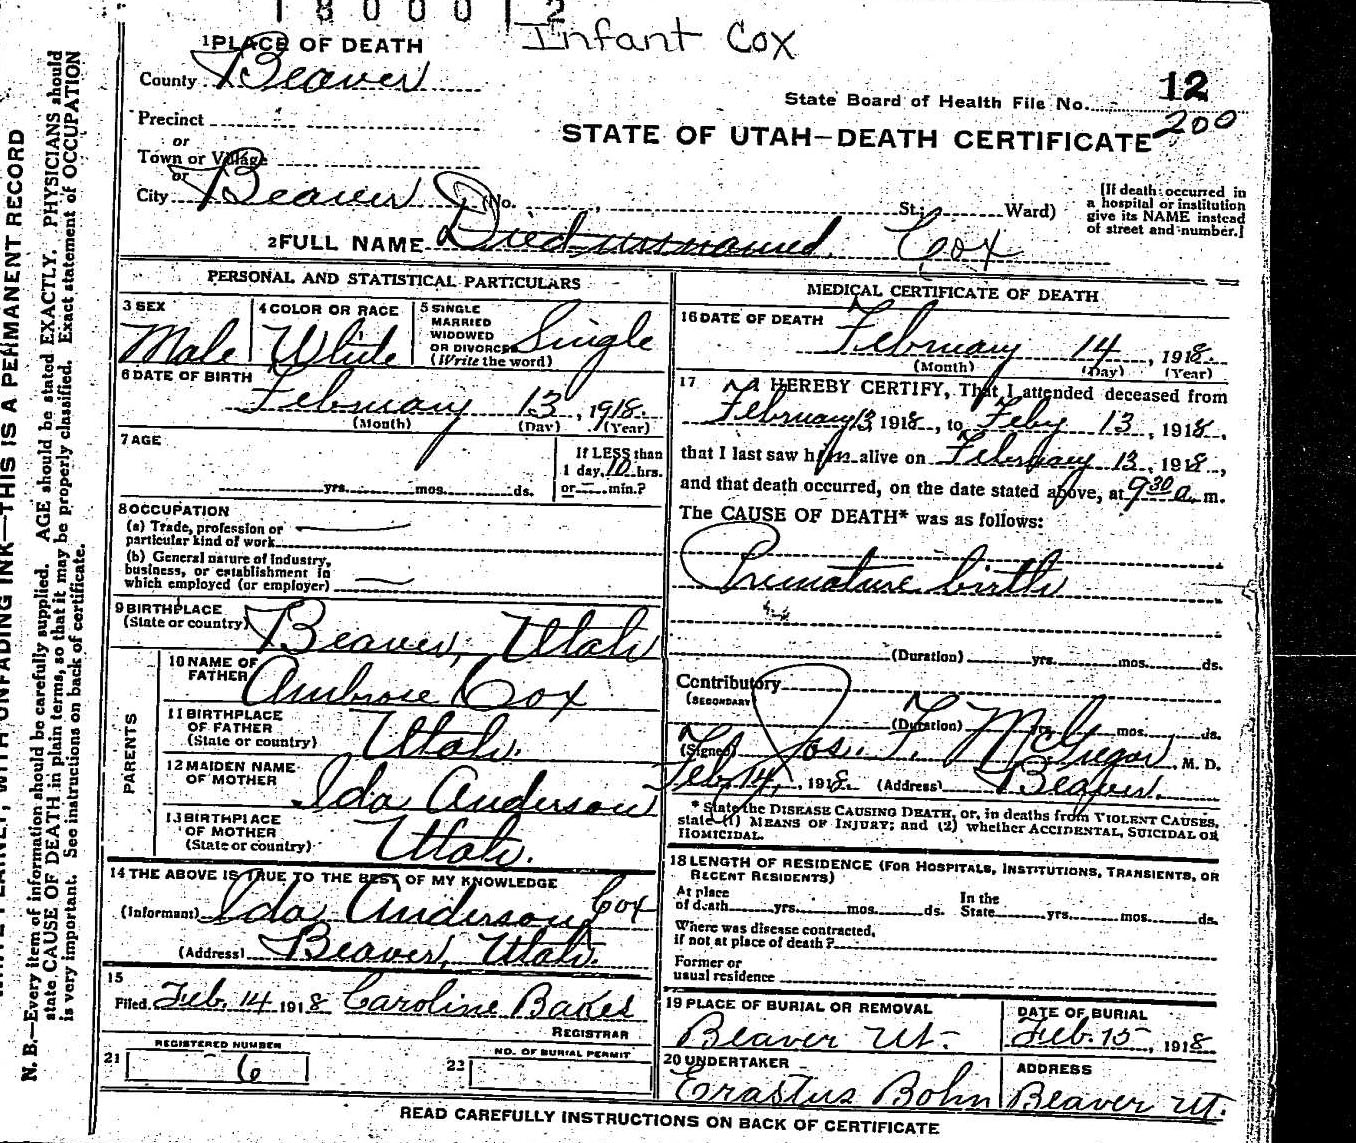 1800012
Infant Cox
1 PLACE OF DEATH
County Beaver
12
State Board of Health File No.
200
Precinct
or
STATE OF UTAH—DEATH CERTIFICATE
Town or Village
or
City Beaver (No. , St.; Ward)
[If death occurred in
a hospital or institution
give its NAME instead
of street and number.]
2 FULL NAME Died unnamed. Cox
PERSONAL AND STATISTICAL PARTICULARS
3 SEX
Male
4 COLOR OR RACE
White
5 SINGLE
MARRIED
WIDOWED
OR DIVORCED
(Write the word)
Single
6 DATE OF BIRTH
February 13, 1918.
(Month) (Day) (Year)
7 AGE
yrs. mos. ds.
If LESS than
1 day, 10 hrs.
or — min.?
8 OCCUPATION
(a) Trade, profession or
particular kind of work
(b) General nature of industry,
business, or establishment in
which employed (or employer)
9 BIRTHPLACE
(State or country)
Beaver, Utah
PARENTS
10 NAME OF
FATHER
Ambrose Cox
11 BIRTHPLACE
OF FATHER
(State or country)
Utah.
12 MAIDEN NAME
OF MOTHER
Ida Anderson
13 BIRTHPLACE
OF MOTHER
(State or country)
Utah.
14 THE ABOVE IS TRUE TO THE BEST OF MY KNOWLEDGE
(Informant) Ida Anderson Cox
(Address) Beaver, Utah.
15
Filed Feb. 14 1918 Caroline Bakes
REGISTRAR
21 REGISTERED NUMBER
6
22 NO. OF BURIAL PERMIT
MEDICAL CERTIFICATE OF DEATH
16 DATE OF DEATH
February 14, 1918.
(Month) (Day) (Year)
17 I HEREBY CERTIFY, That I attended deceased from
February 13 1918, to Feby 13, 1918,
that I last saw him alive on February 13, 1918,
and that death occurred, on the date stated above, at 9 30 a. m.
The CAUSE OF DEATH* was as follows:
Premature birth
(Duration) yrs. mos. ds.
Contributory
(SECONDARY)
(Duration) yrs. mos. ds.
(Signed) Jos. T. McGregor, M. D.
Feb 14, 1918. (Address) Beaver.
* State the DISEASE CAUSING DEATH, or, in deaths from VIOLENT CAUSES,
state (1) MEANS OF INJURY; and (2) whether ACCIDENTAL, SUICIDAL OR
HOMICIDAL.
18 LENGTH OF RESIDENCE (FOR HOSPITALS, INSTITUTIONS, TRANSIENTS, OR
RECENT RESIDENTS)
At place
of death yrs. mos. ds.
In the
State yrs. mos. ds.
Where was disease contracted,
if not at place of death?
Former or
usual residence
19 PLACE OF BURIAL OR REMOVAL
Beaver Ut.
DATE OF BURIAL
Feb. 15, 1918
20 UNDERTAKER
Erastus Bohn
ADDRESS
Beaver Ut.
READ CAREFULLY INSTRUCTIONS ON BACK OF CERTIFICATE
WITH UNFADING INK—THIS IS A PERMANENT RECORD
N. B.—Every item of information should be carefully supplied. AGE should be stated EXACTLY. PHYSICIANS should
state CAUSE OF DEATH in plain terms, so that it may be properly classified. Exact statement of OCCUPATION
is very important. See instructions on back of certificate.